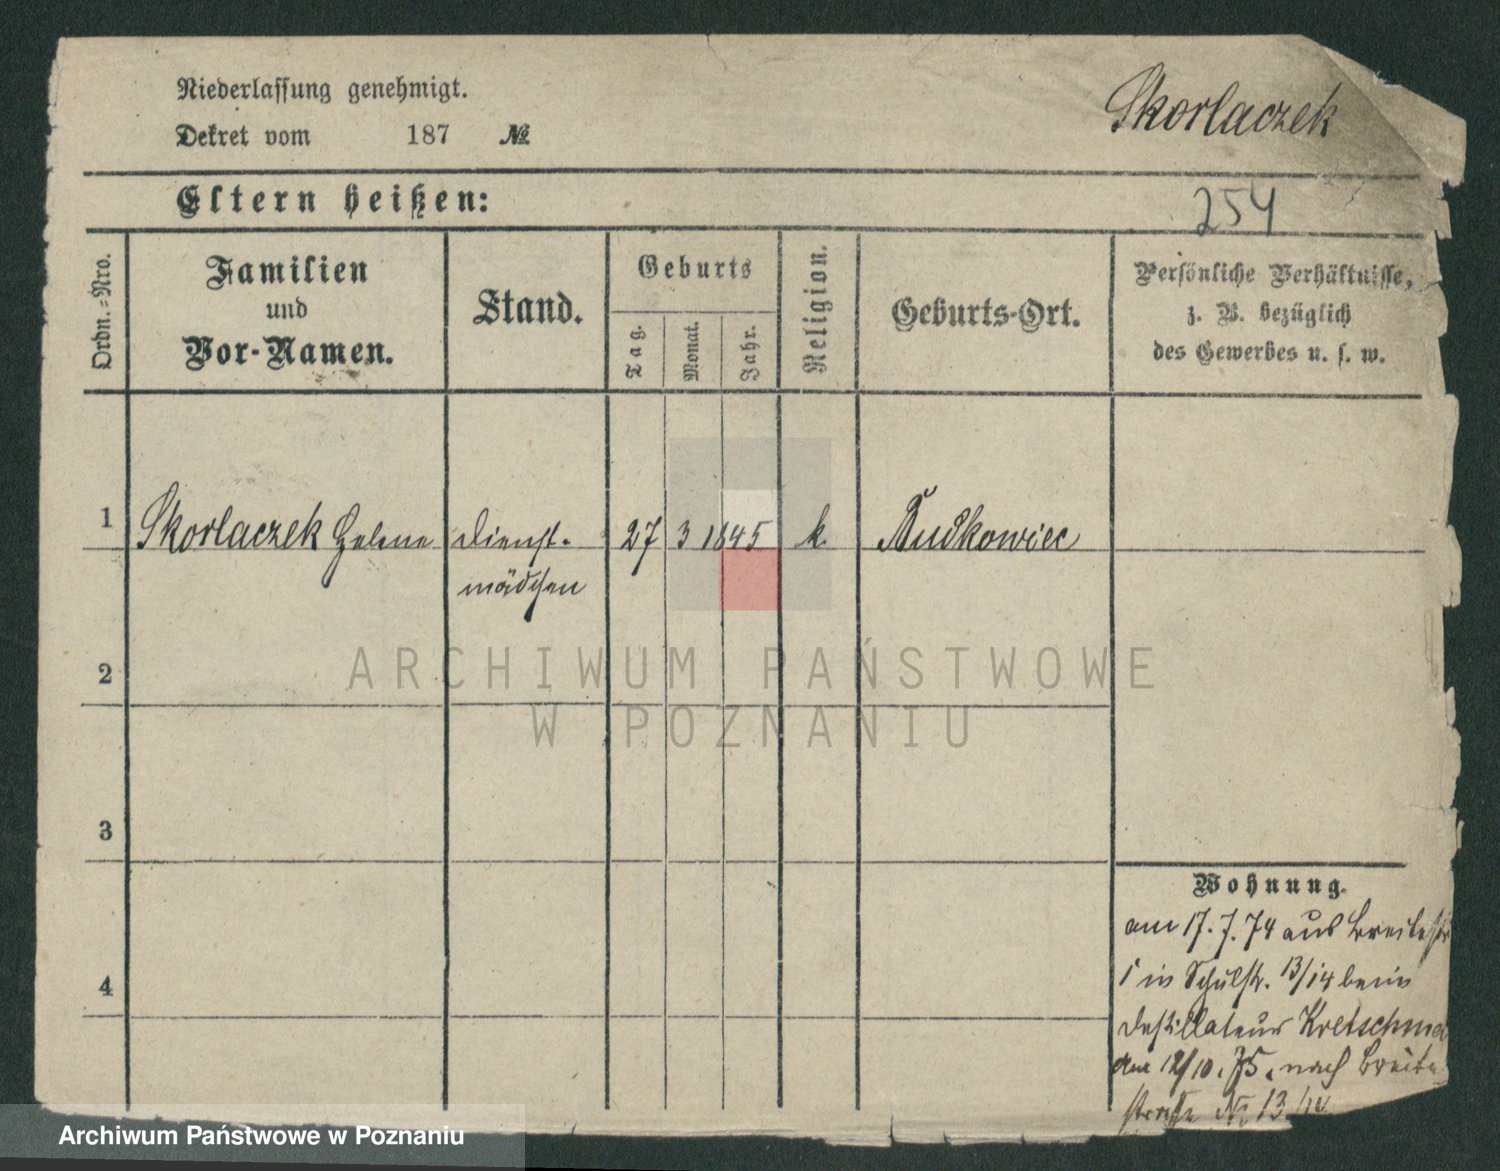 Niederlassung genehmigt.
Skorlaczek
Dekret vom 187 №
Eltern heißen:
254
Ordn.-Nro.
Familien
und
Vor-Namen.
Stand.
Geburts
Tag.
Monat.
Jahr.
Religion.
Geburts-Ort.
Persönliche Verhältnisse,
z. B. bezüglich
des Gewerbes u. s. w.
1 Skorlaczek Helene Dienst- 27 3 1845 k.
mädchen
2
ARCHIWUM PAŃSTWOWE
W POZNANIU
3
4
Wohnung.
am 17.7.74 aus Breitestr
1 in Schulstr. 13/14 beim
Destillateur Kretschme
am 12/10.75. nach Breite
strasse No 13/14
Archiwum Państwowe w Poznaniu